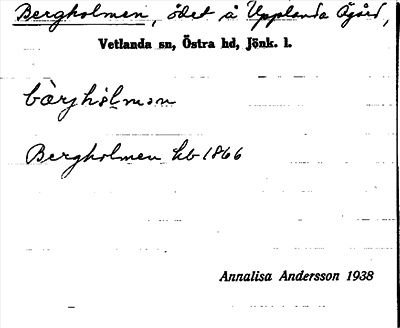 Bergholmen, ödet å Upplanda Ägård,
Vetlanda sn, Östra hd, Jönk. l.
bàrjhòlmən
Bergholmen kb 1866
Annalisa Andersson 1938